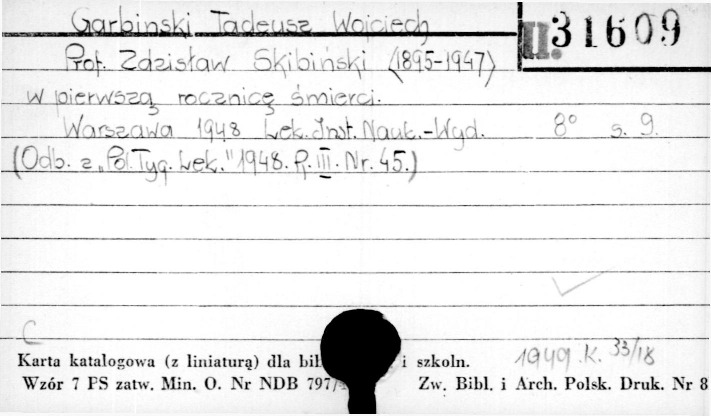 Garbiński Tadeusz Wojciech
II.31609
Prof. Zdzisław Skibiński (1895-1947)
w pierwszą rocznicę śmierci.
Warszawa 1948 Lek. Inst. Nauk.-Wyd. 8° s. 9.
(Odb. z „Pol. Tyg. Lek." 1948. R. III. Nr. 45.)
C
Karta katalogowa (z liniaturą) dla i szkoln.
1949. K. 33/18
Wzór 7 PS zatw. Min. O. Nr NDB 797/ Zw. Bibl. i Arch. Polsk. Druk. Nr 8